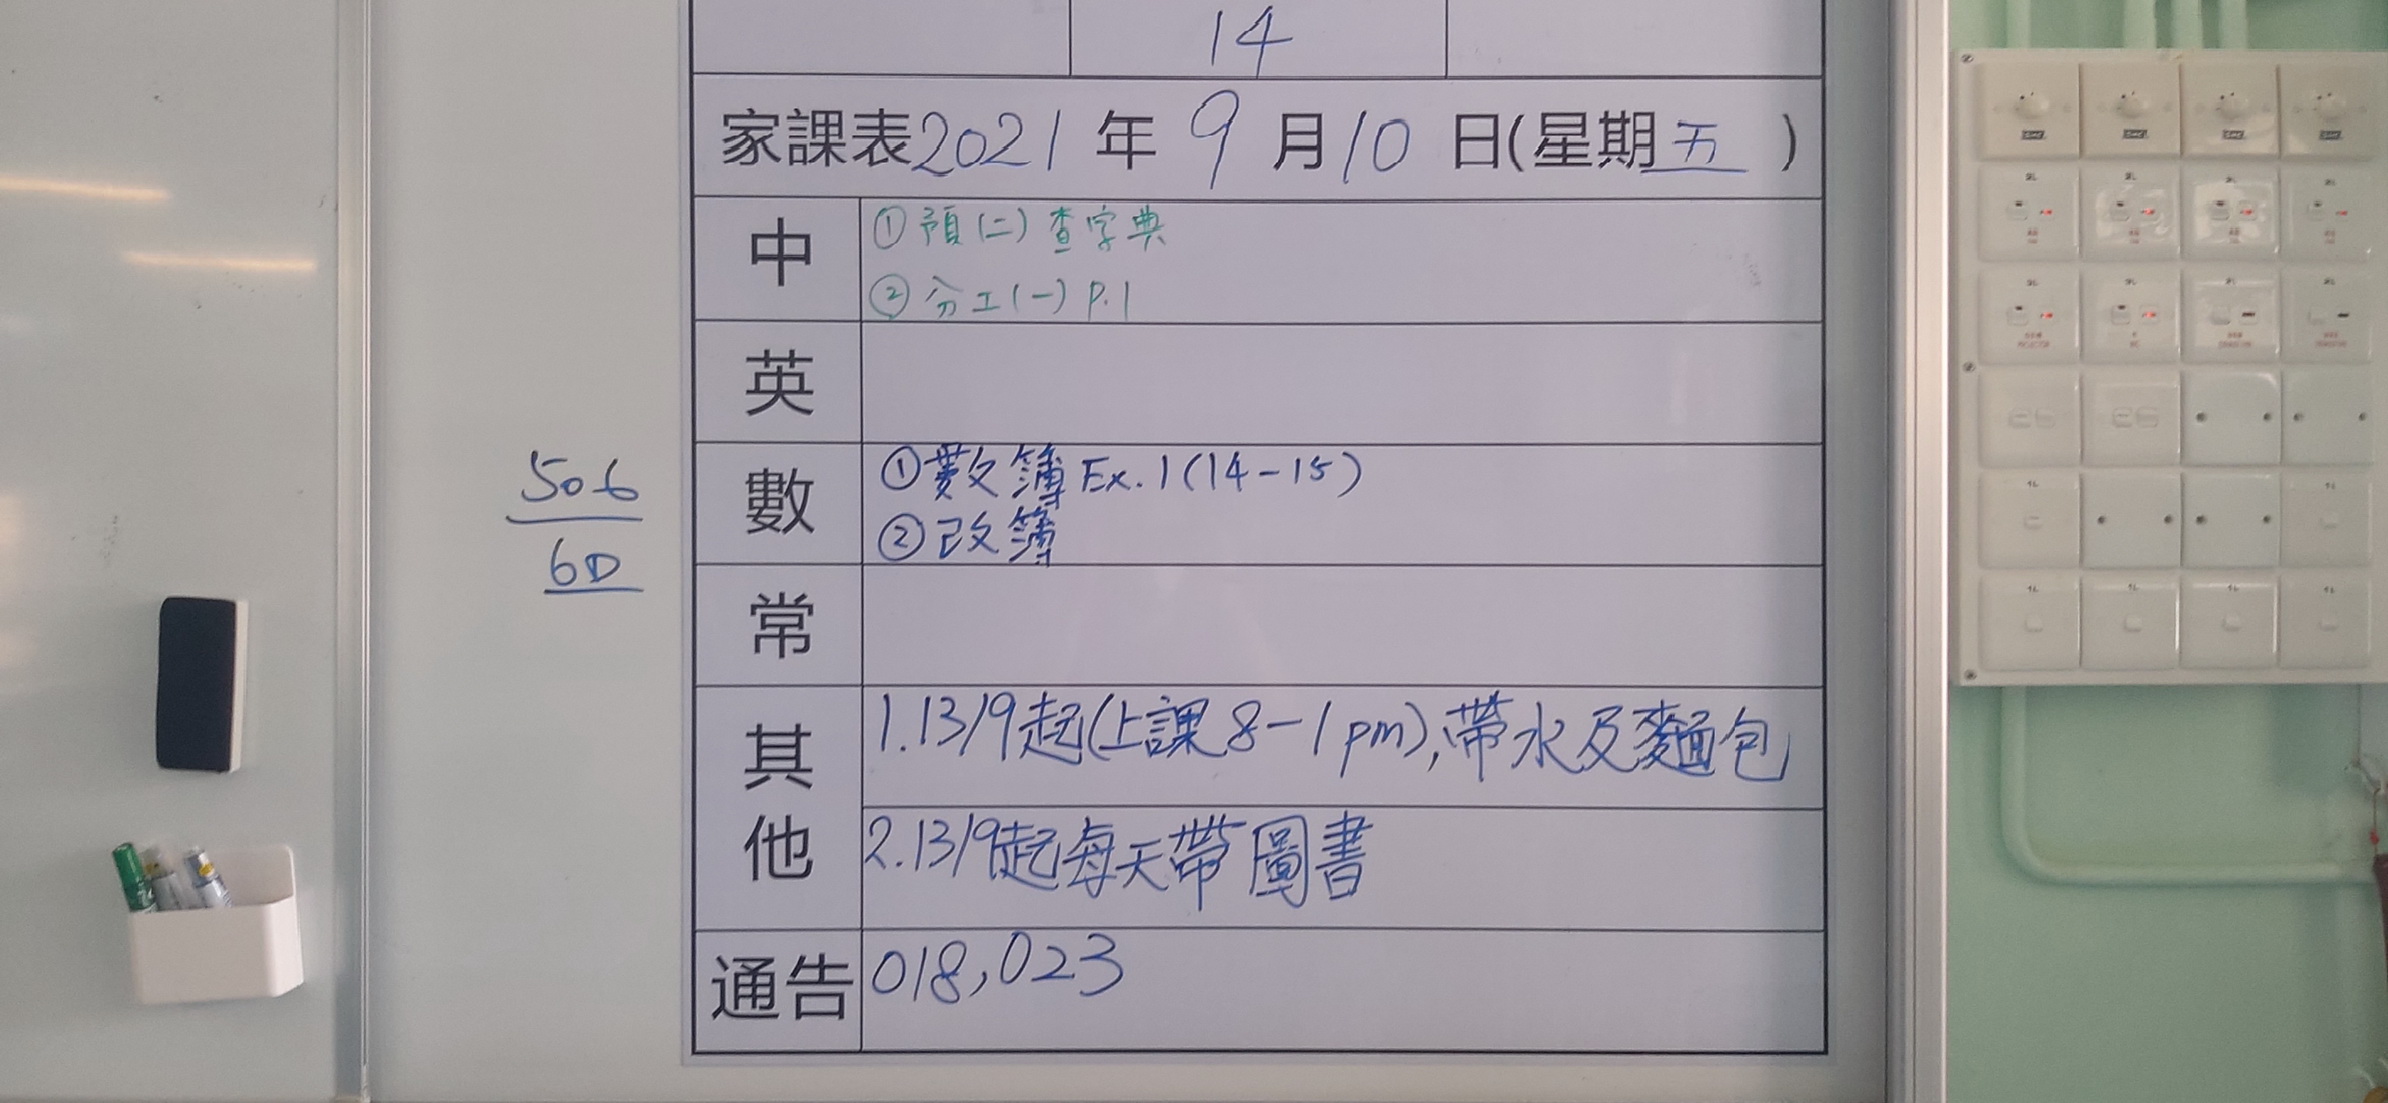 14
家課表2021年9月10日(星期五)
中
①預(二)查字典
②分工(一)P.1
英
數
①數簿Ex.1(14-15)
②改簿
506
6D
常
其他
1.13/9起(上課8-1pm),帶水及麵包
2.13/9起每天帶圖書
通告
018,023